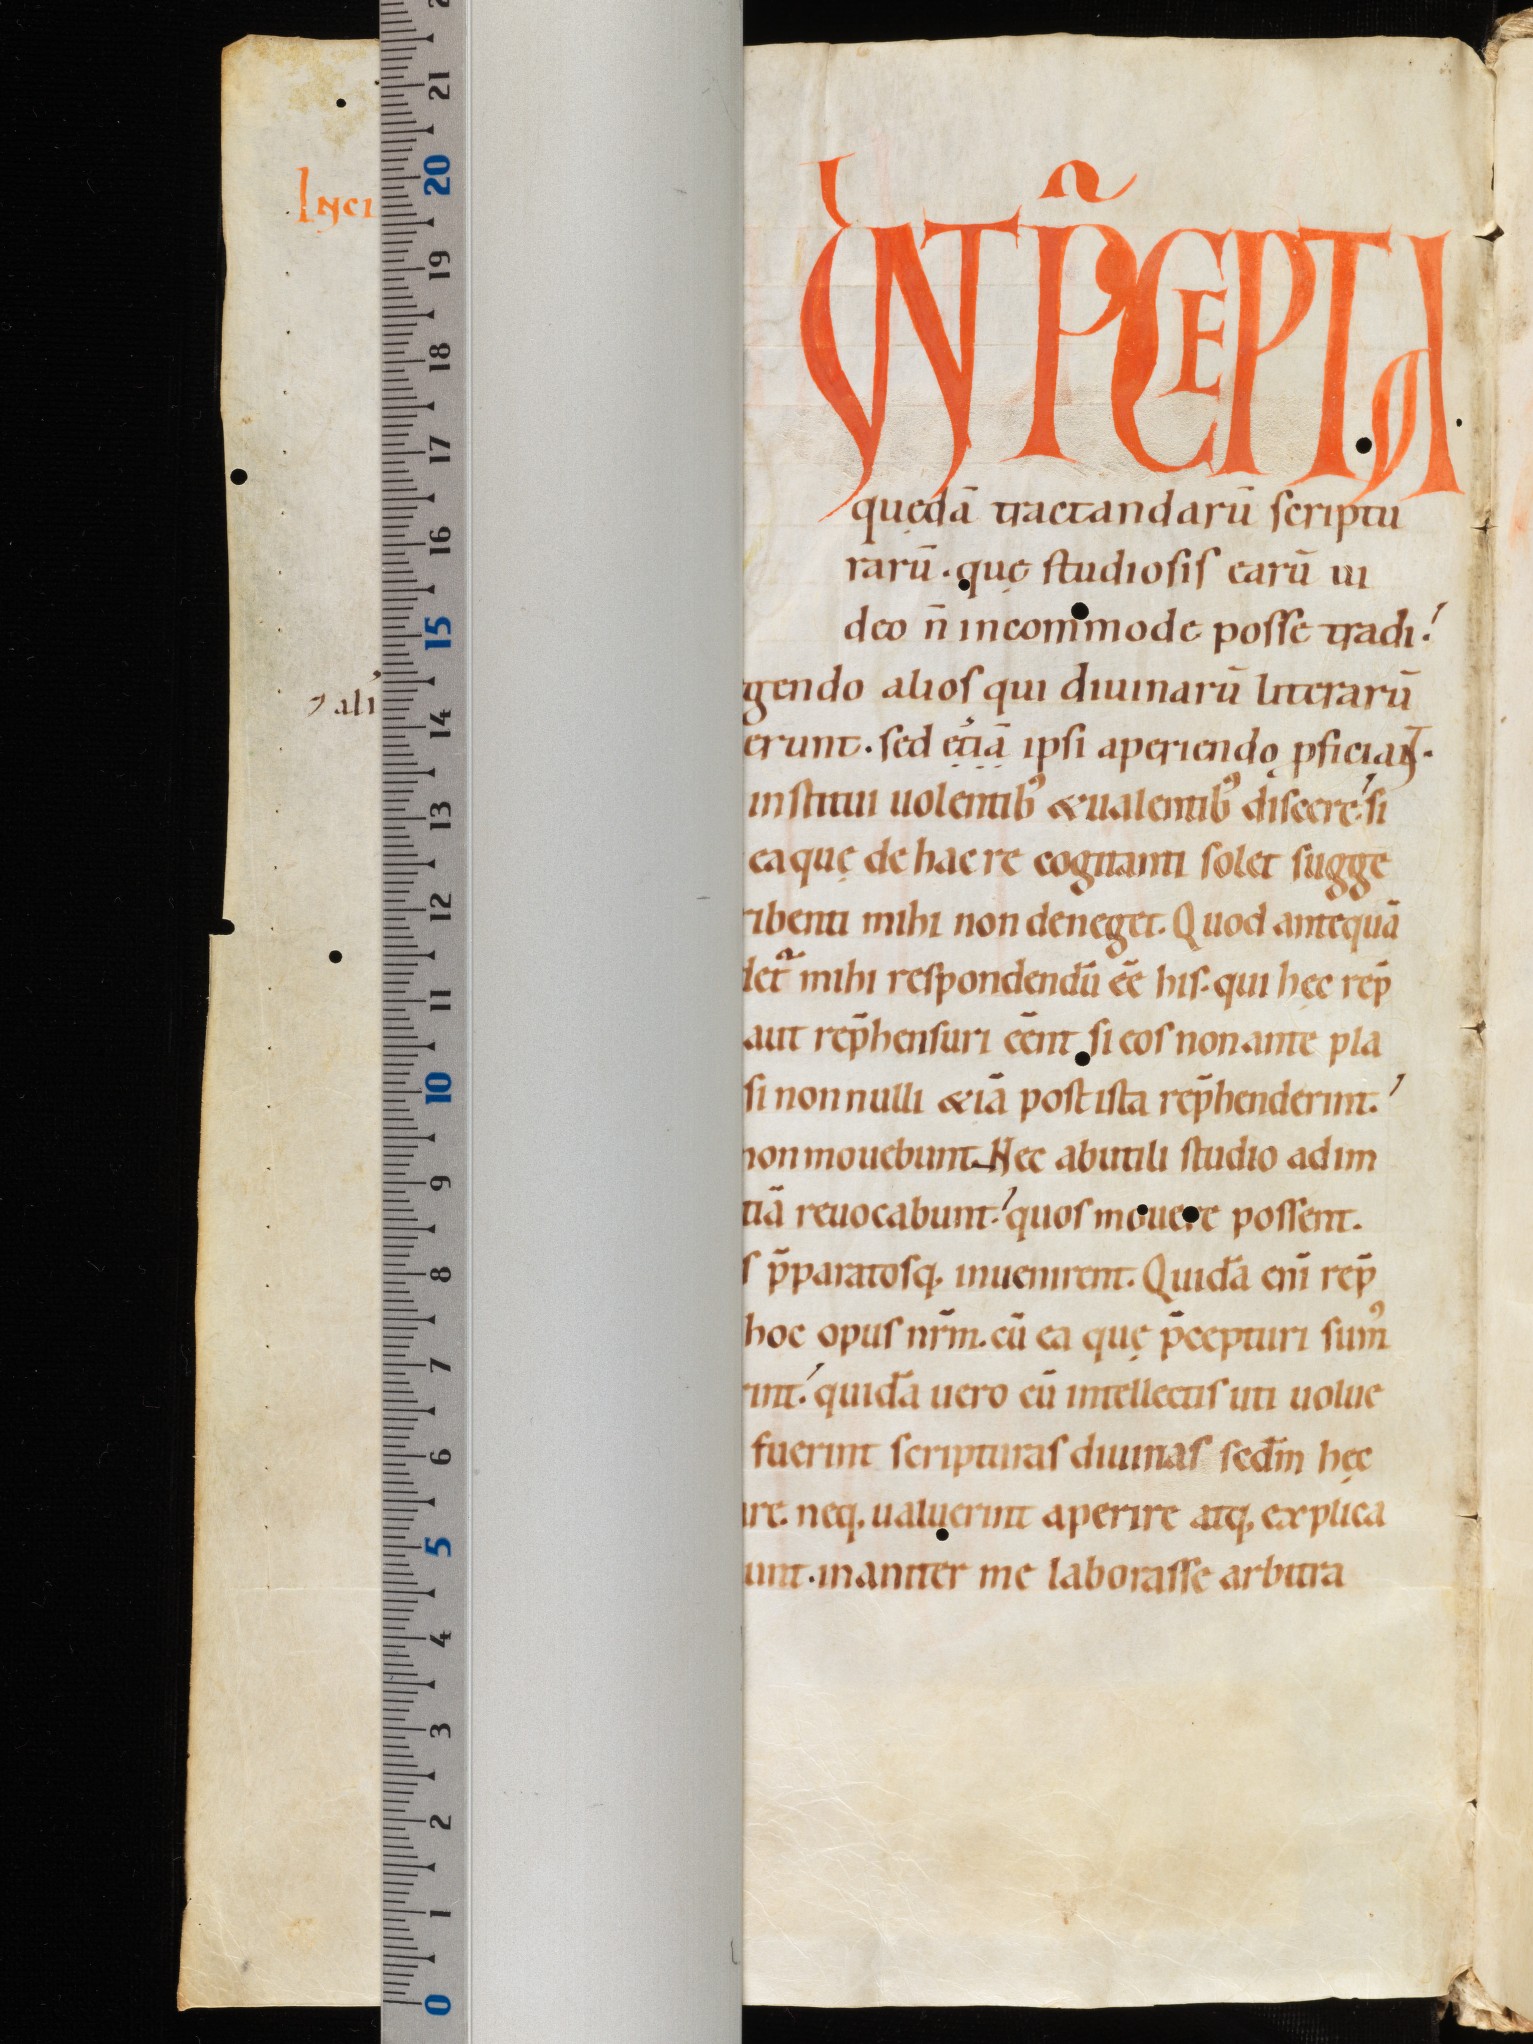 Inci
UNT P̃CEPTA
quędā tractandarū scriptu
rarū. quę studiosis earū ui
deo n̄ incommode posse tradi.
gendo alios qui diuinarū literarū
⁊ ali
erunt. sed etiā ipsi aperiendo ꝓficiant.
institui uolentib; & ualentib; discere. si
ea quę de hac re cogitanti solet sugge
ribenti mihi non deneget. Quod antequā
det᷑ mihi respondendū ēē his. qui hęc rep̄
aut rep̄hensuri ēēnt si eos non ante pla
si non nulli &iā post ista rep̄henderint.
non mouebunt. Nec ab utili studio ad im
tiā reuocabunt. quos mouere possent.
s p̄paratosq; inuenirent. Quidā eni̅ rep̄
hoc opus nr̄m. cū ea quę p̄cepturi sum᾽
rint. quidā uero cū intellectis uti uolue
fuerint scripturas diuinas sedm̄ hęc
are. neq; ualuerint aperire atq; explica
unt. inaniter me laborasse arbitra
0 1 2 3 4 5 6 7 8 9 10 11 12 13 14 15 16 17 18 19 20 21